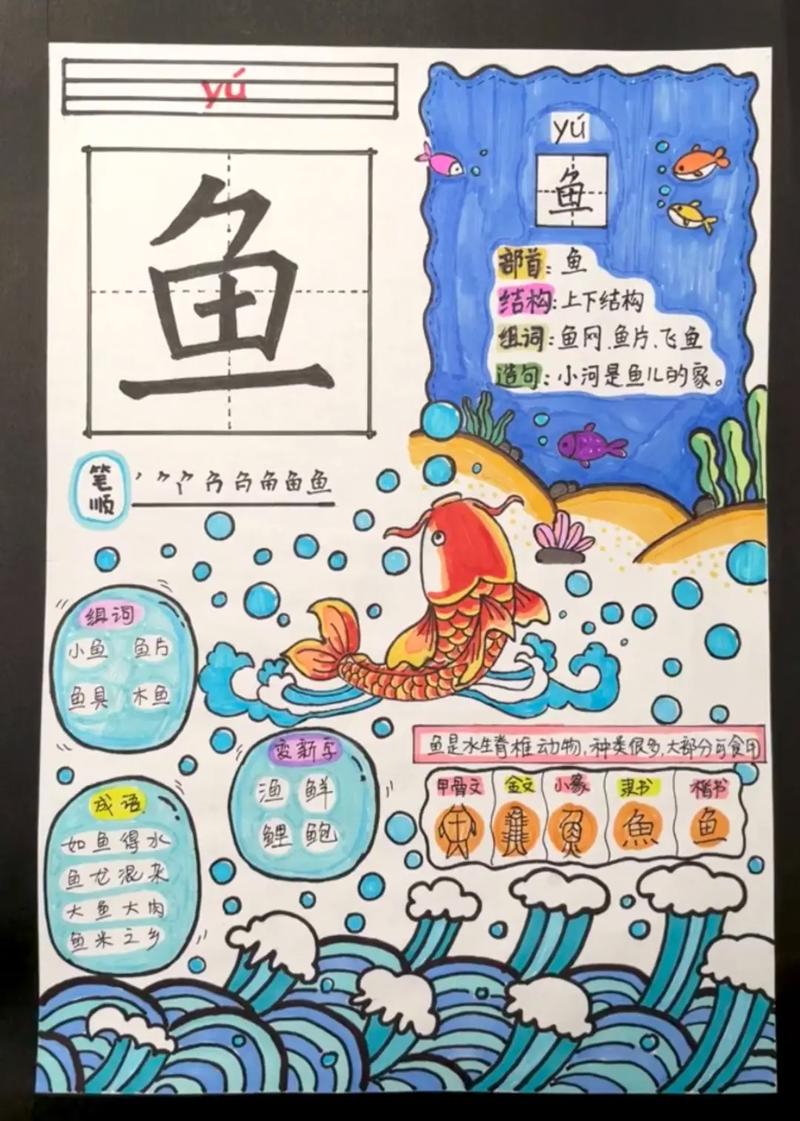 yú
鱼
yú
鱼
部首：鱼
结构：上下结构
组词：鱼网、鱼片、飞鱼
造句：小河是鱼儿的家。
笔顺
组词
小鱼 鱼片
鱼具 木鱼
变新字
渔 鲜
鲤 鲍
成语
如鱼得水
鱼龙混杂
大鱼大肉
鱼米之乡
鱼是水生脊椎动物，种类很多，大部分可食用
甲骨文 金文 小篆 隶书 楷书
魚 鱼